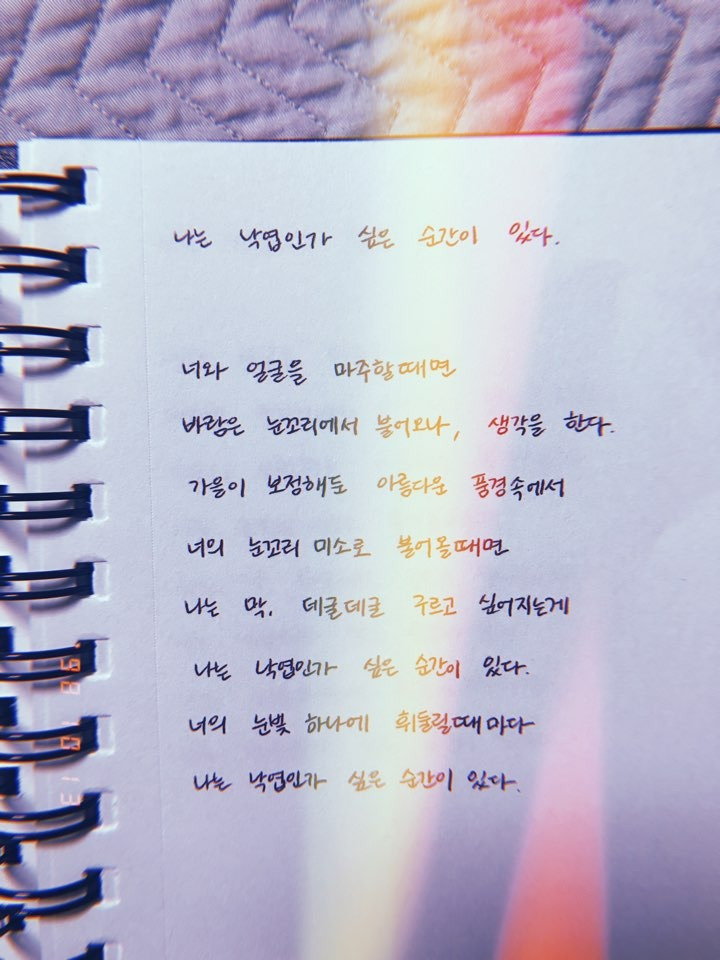 나는 낙엽인가 싶은 순간이 있다.
너와 얼굴을 마주할때면
바람은 눈꼬리에서 불어오나, 생각을 한다.
가을이 보정해둔 아름다운 풍경속에서
너의 눈꼬리 미소로 불어올때면
나는 막, 데굴데굴 구르고 싶어지는게
나는 낙엽인가 싶은 순간이 있다.
너의 눈빛 하나에 휘둘릴때마다
나는 낙엽인가 싶은 순간이 있다.